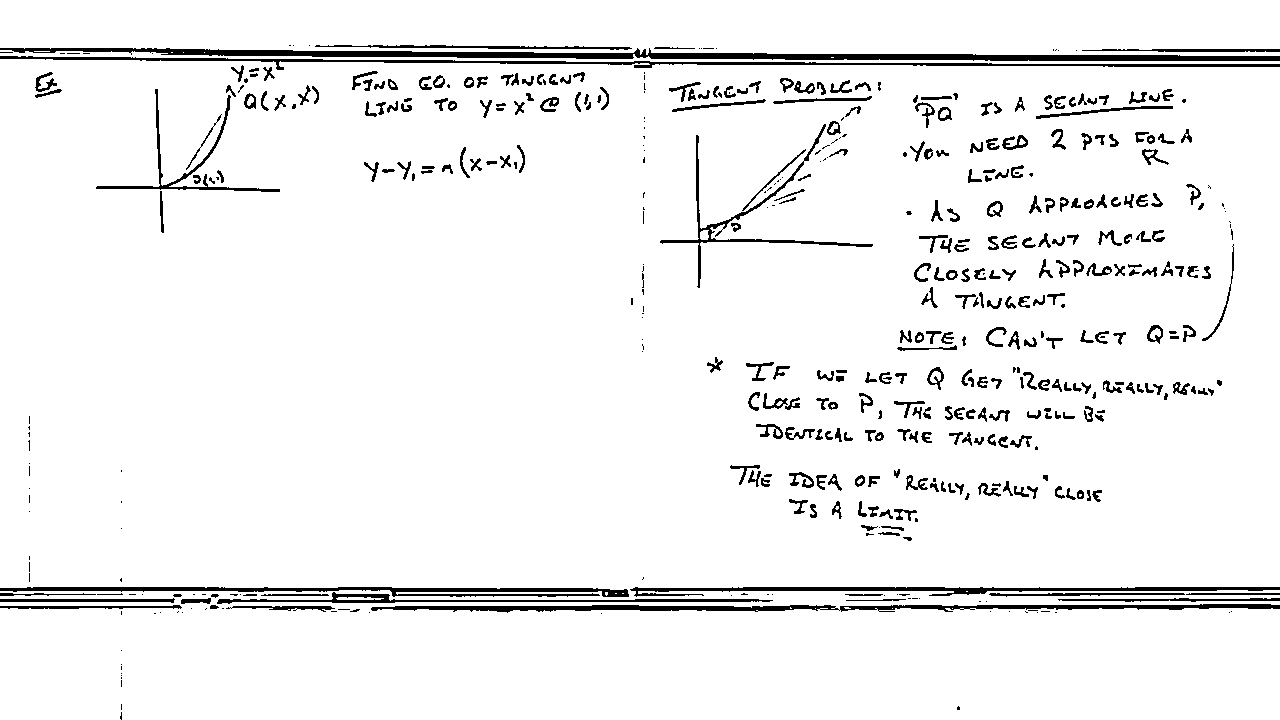 Ex
Y=X²
Q(X,X²)
P(1,1)
FIND EQ. OF TANGENT
LINE TO Y=X² @ (1,1)
Y-Y₁=m(X-X₁)
TANGENT PROBLEM:
Q
P
"PQ" IS A SECANT LINE.
·YOU NEED 2 PTS FOR A
LINE.
· AS Q APPROACHES P,
THE SECANT MORE
CLOSELY APPROXIMATES
A TANGENT.
NOTE: CAN'T LET Q=P
* IF WE LET Q GET "REALLY, REALLY, REALLY"
CLOSE TO P, THE SECANT WILL BE
IDENTICAL TO THE TANGENT.
THE IDEA OF "REALLY, REALLY" CLOSE
IS A LIMIT.